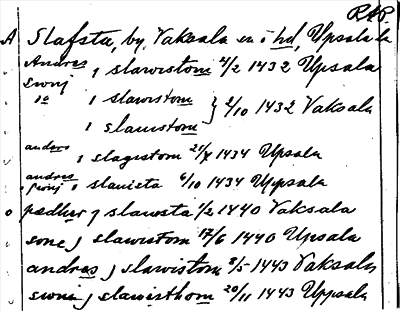 RAP.
A Slafsta, by, Vaksala sn o hd, Uppsala
Andres i slawistom 4/2 1432 Uppsala
swnj
io i slawistom } 2/10 1432 Vaksala
i slauistom
anders i slagistom 21/7 1434 Uppsala
andres, swnj i slauista 6/10 1434 Uppsala
o pædher j slawsta 1/2 1440 Vaksala
sone j slawistom 17/6 1440 Uppsala
andras j slawistom 8/5 1443 Vaksala
swni j slawisthom 20/11 1443 Uppsala